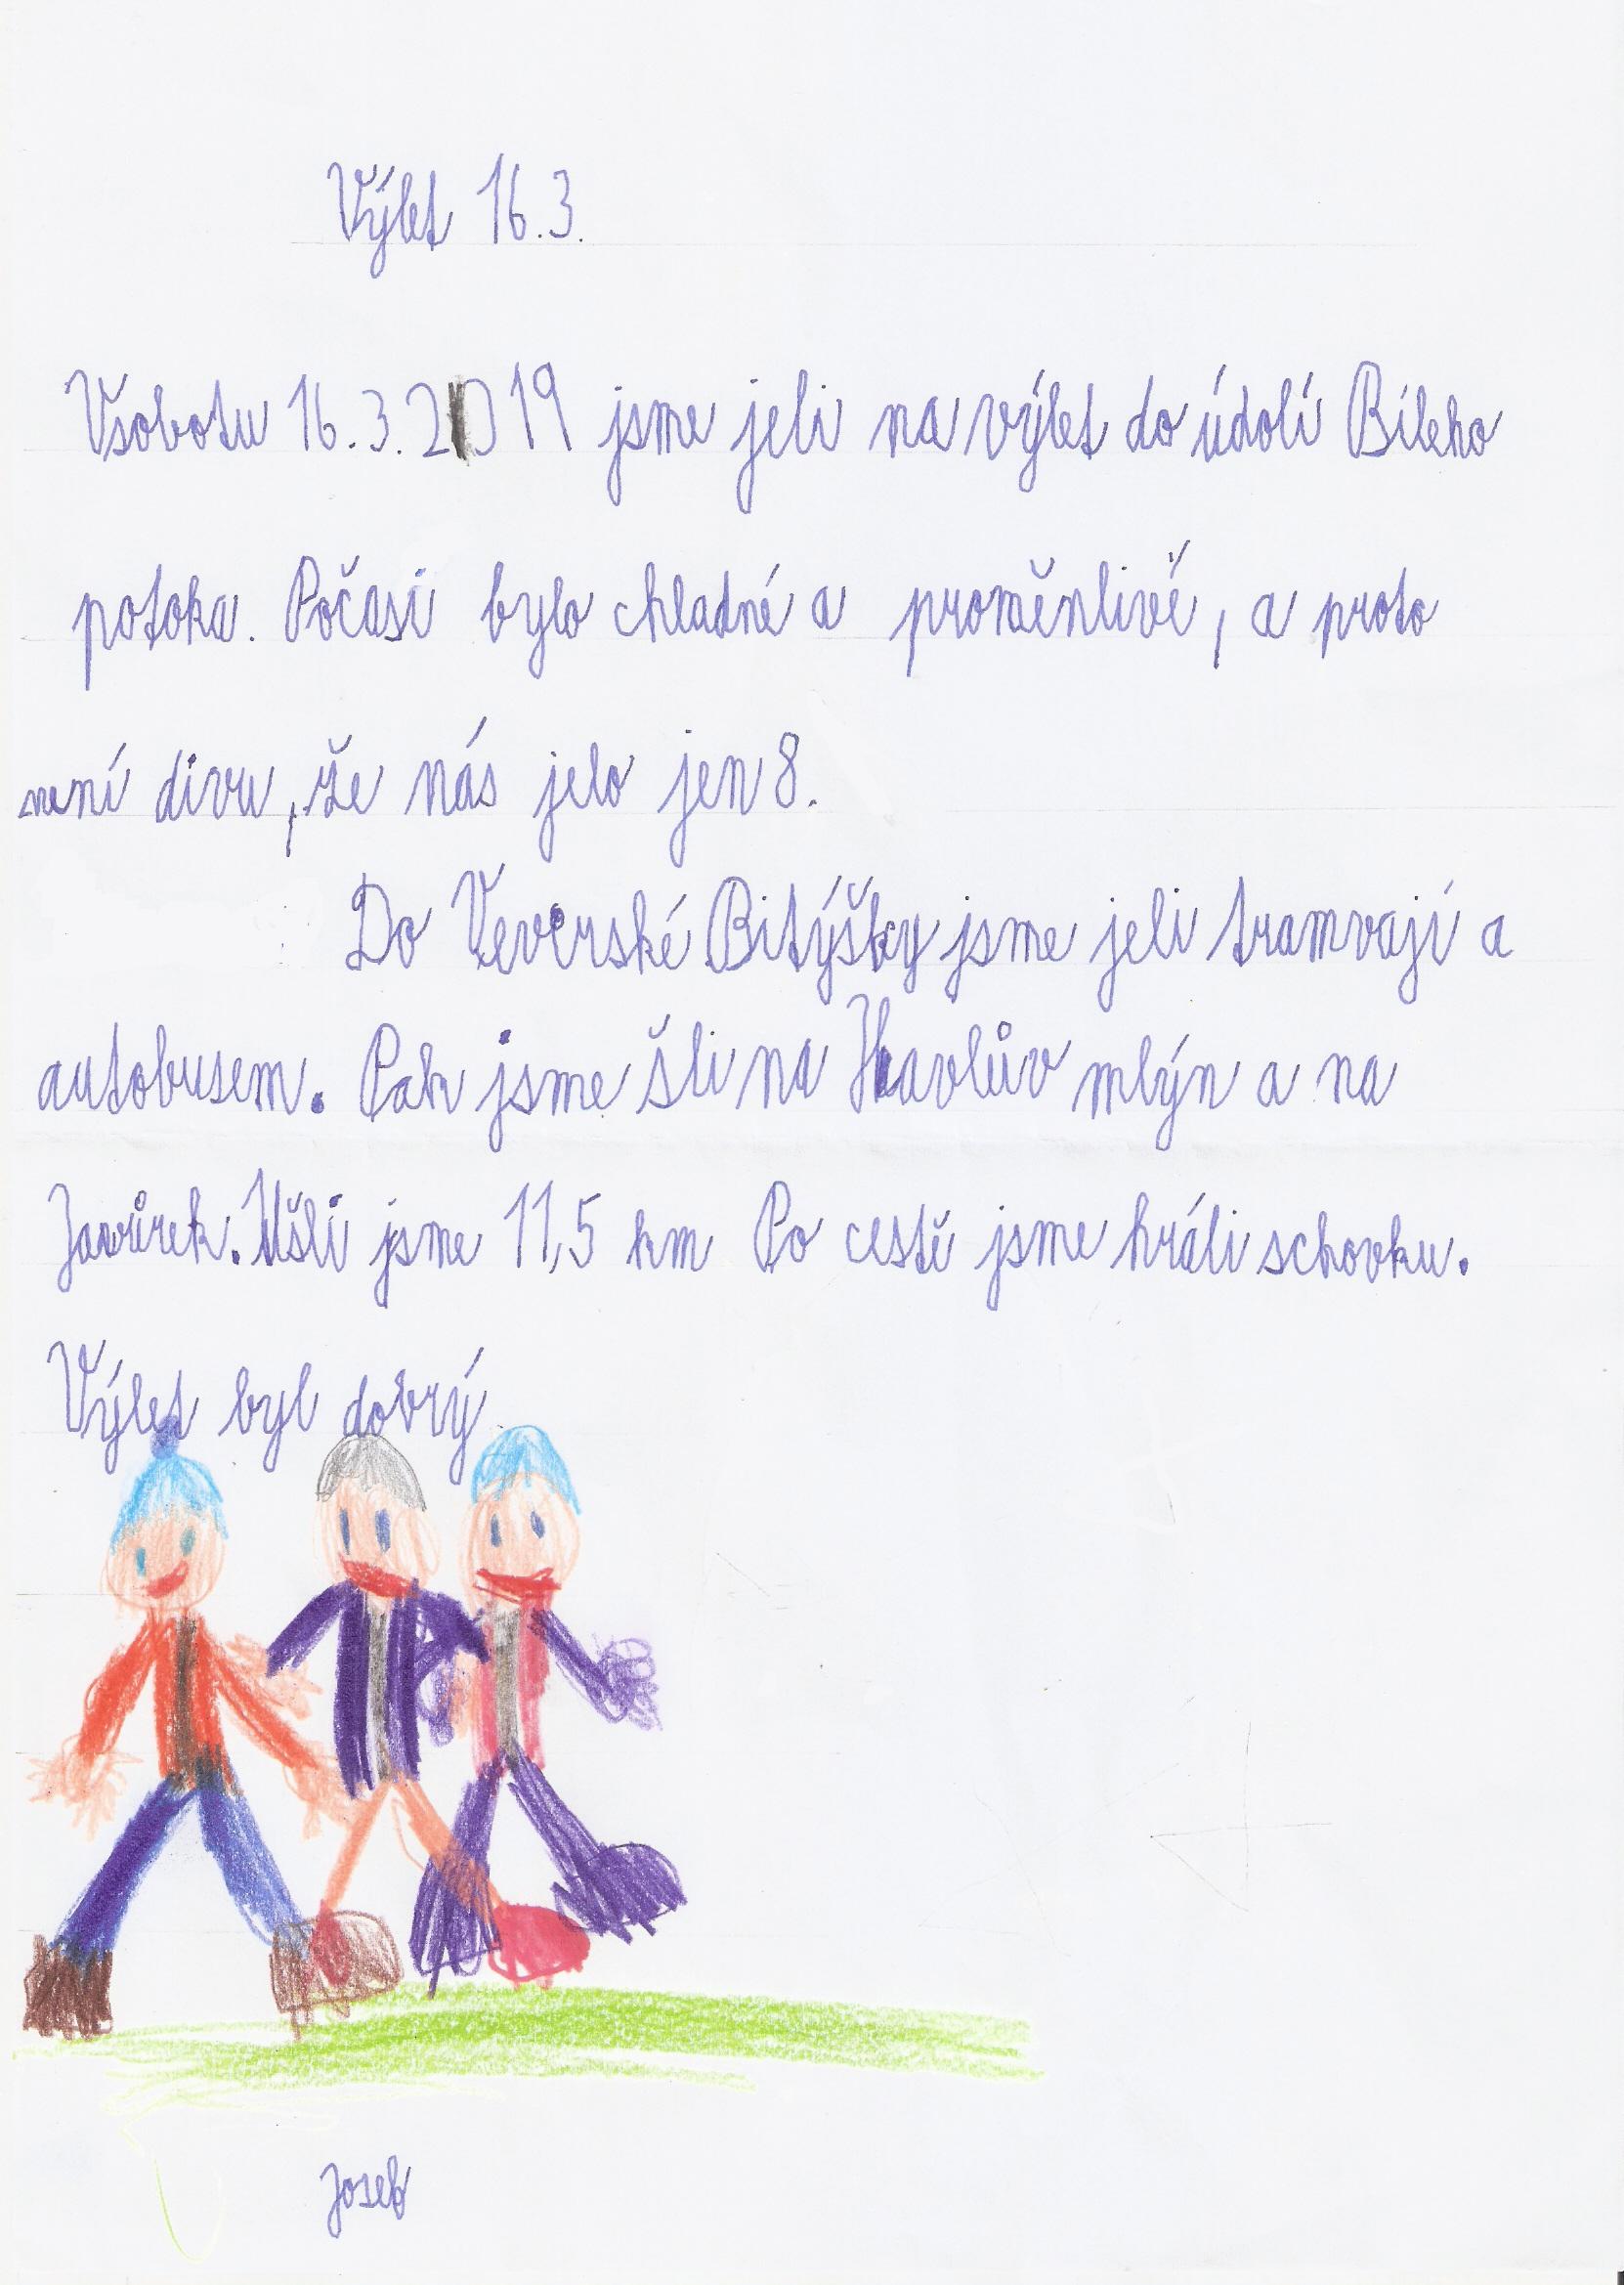 Výlet 16.3.
V sobotu 16.3.2019 jsme jeli na výlet do údolí Bíleho
potoka. Počasí bylo chladné a proměnlivé, a proto
není divu, že nás jelo jen 8.
Do Veverské Bitýšky jsme jeli tramvají a
autobusem. Pak jsme šli na Havlův mlýn a na
Javůrek. Ušli jsme 11,5 km Po cestě jsme hráli schovku.
Výlet byl dobrý
Josef